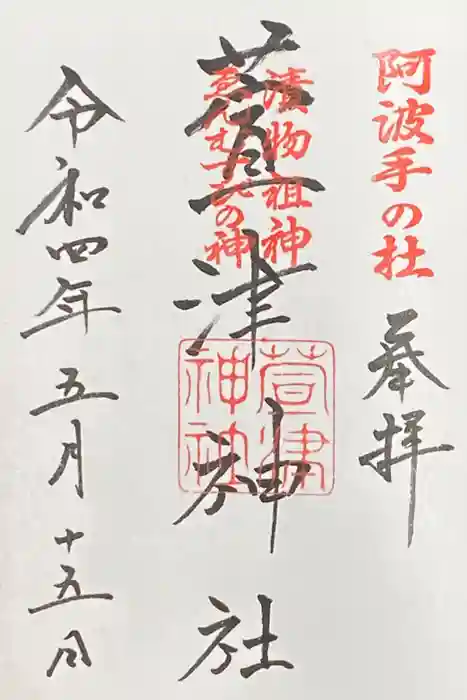 阿波手の杜
奉拝
漬物祖神
ゑんむすびの神
萱津神社
萱津
神社
令和四年五月十五日